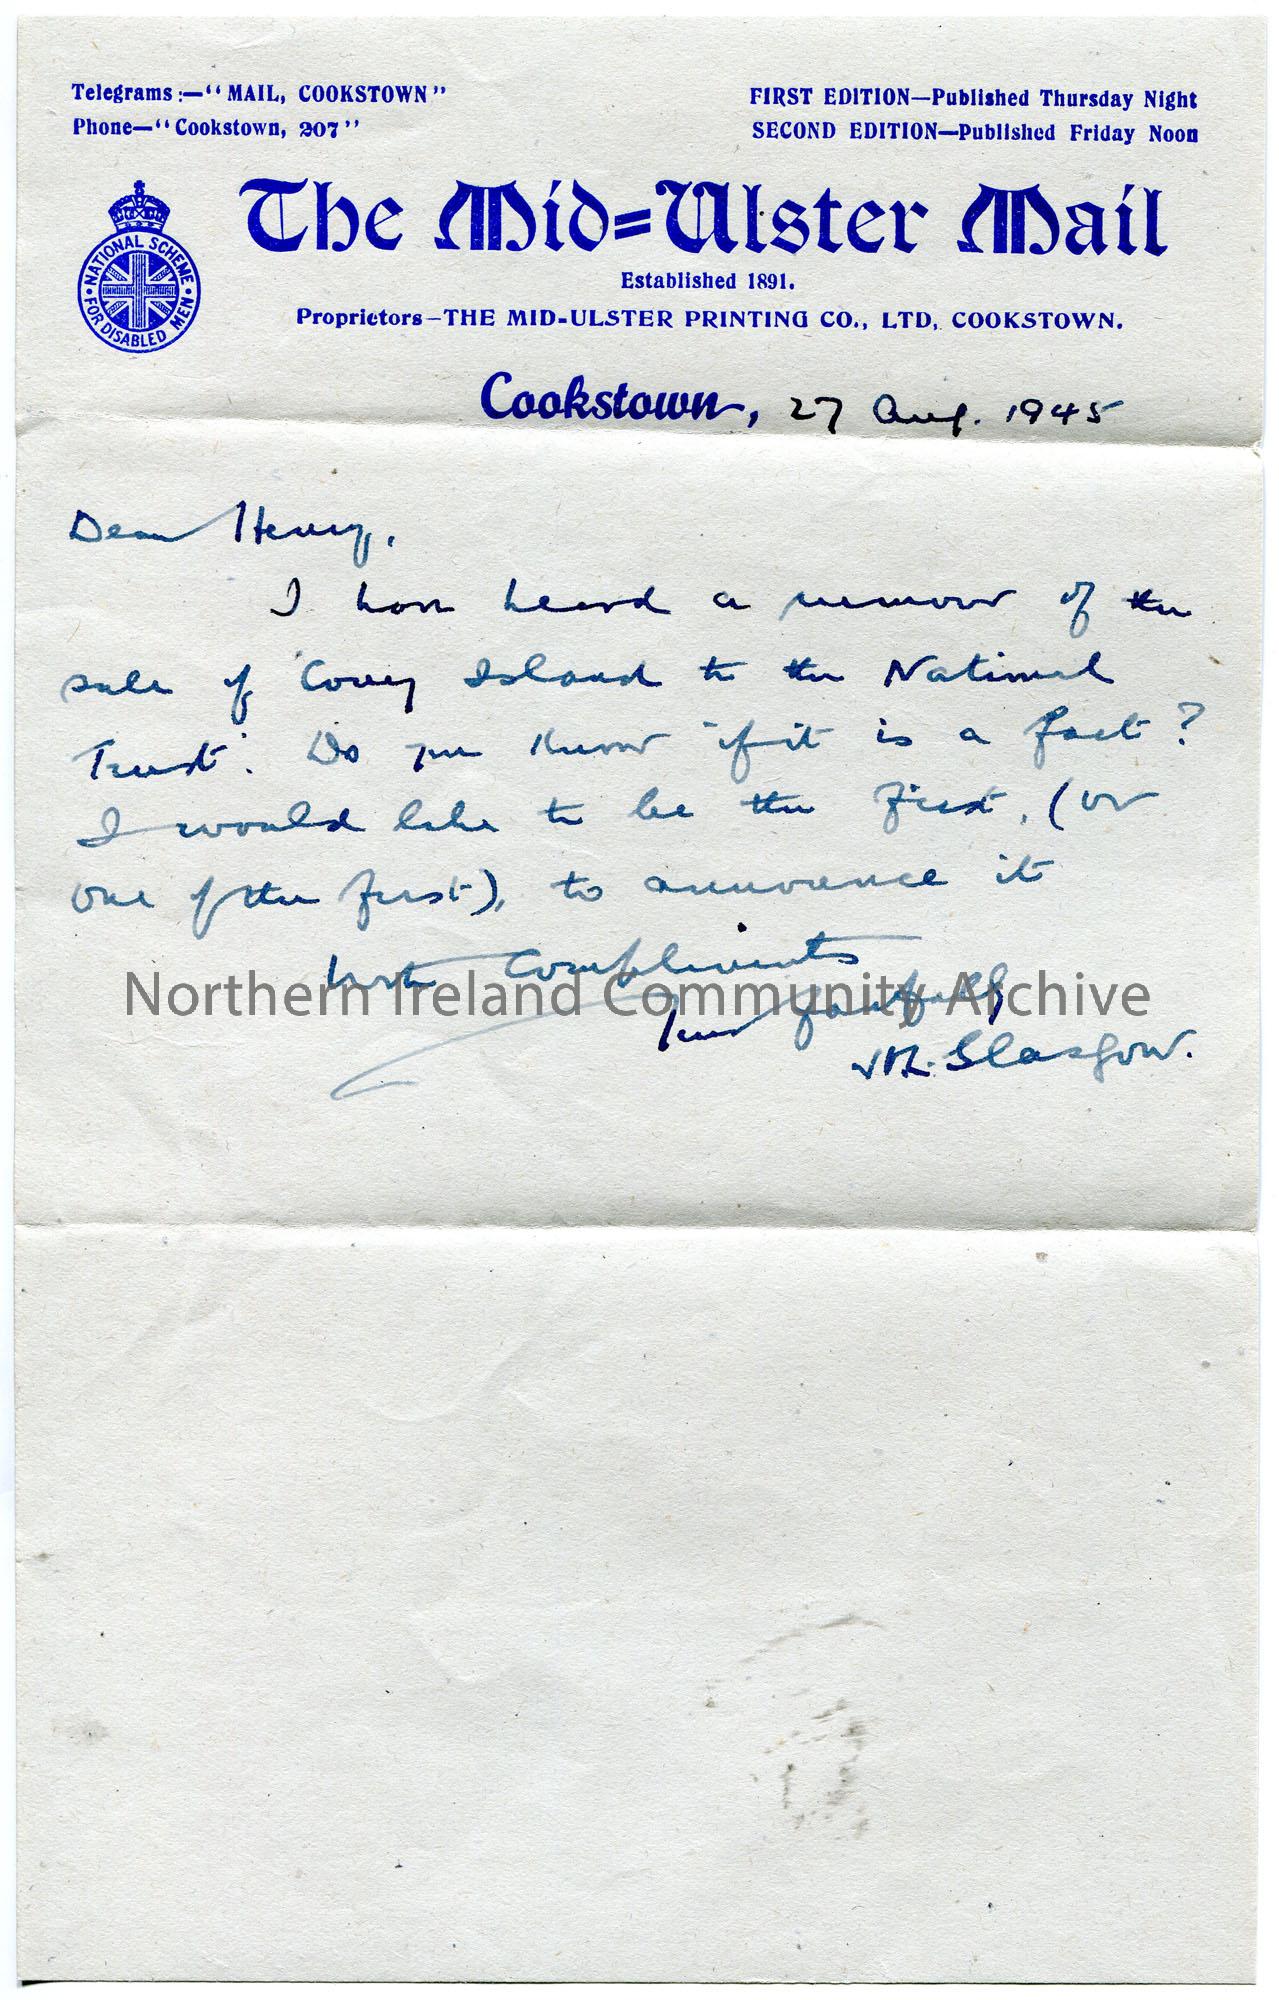 Telegrams:—“MAIL, COOKSTOWN”
Phone—“Cookstown, 207”
FIRST EDITION—Published Thursday Night
SECOND EDITION—Published Friday Noon
NATIONAL SCHEME FOR DISABLED MEN
The Mid=Ulster Mail
Established 1891.
Proprietors—THE MID-ULSTER PRINTING CO., LTD, COOKSTOWN.
Cookstown, 27 Aug. 1945
Dear Henry,
I have heard a rumour of the
sale of 'Coney Island to the National
Trust'. Do you know if it is a fact?
I would like to be the first, (or
one of the first), to announce it
With Compliments
Yours faithfully
Glasgow.
Northern Ireland Community Archive